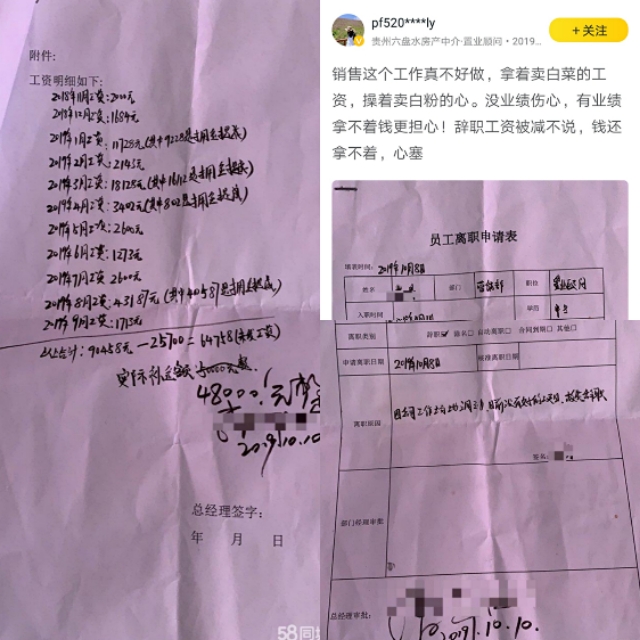 附件:
工资明细如下:
2018年11月工资:2000元
2018年12月工资:1684元
2019年1月工资:11728元(其中9228是拥金提成)
2019年2月工资:2145元
2019年3月工资:18128元(其中16112是拥金提成)
2019年4月工资:3402元(其中802是拥金提成)
2019年5月工资:2600元
2019年6月工资:1273元
2019年7月工资:2600元
2019年8月工资:43187元(其中40587是拥金提成)
2019年9月工资:1713元
以上合计:90458元-25700=64758
48000元整
2019.10.10
总经理签字:
年 月 日
58同城
pf520****ly
贵州六盘水房产中介·置业顾问·2019...
+关注
销售这个工作真不好做,拿着卖白菜的工
资,操着卖白粉的心。没业绩伤心,有业绩
拿不着钱更担心!辞职工资被减不说,钱还
拿不着,心塞
员工离职申请表
填表时间: 2019年10月8日
姓名 部门 营销部 职位 置业顾问
入职时间 学历
离职类别 辞职☑ 除名□ 自动离职□ 合同到期□ 其他□
申请离职日期 2019年10月8日 核准离职日期
离职原因
签名
部门经理审批
总经理审批:
2019.10.10.